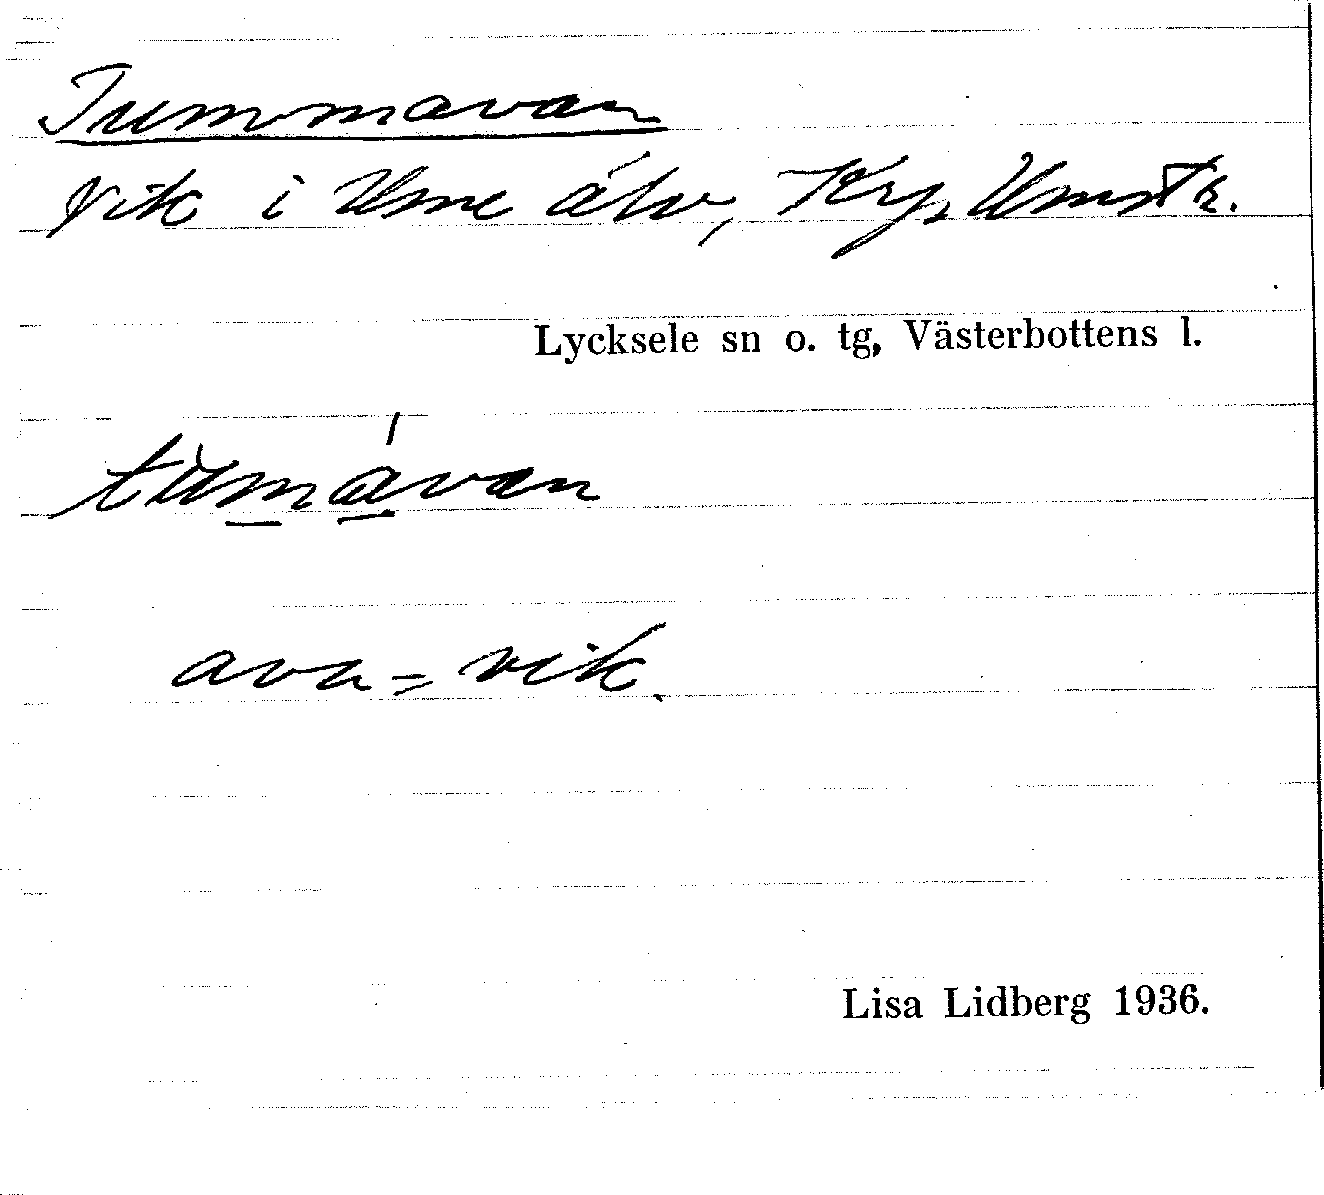 Tummavan
vik i Ume älv, Krp, Umstr.
Lycksele sn o. tg, Västerbottens l.
tumavan
ava = vik.
Lisa Lidberg 1936.